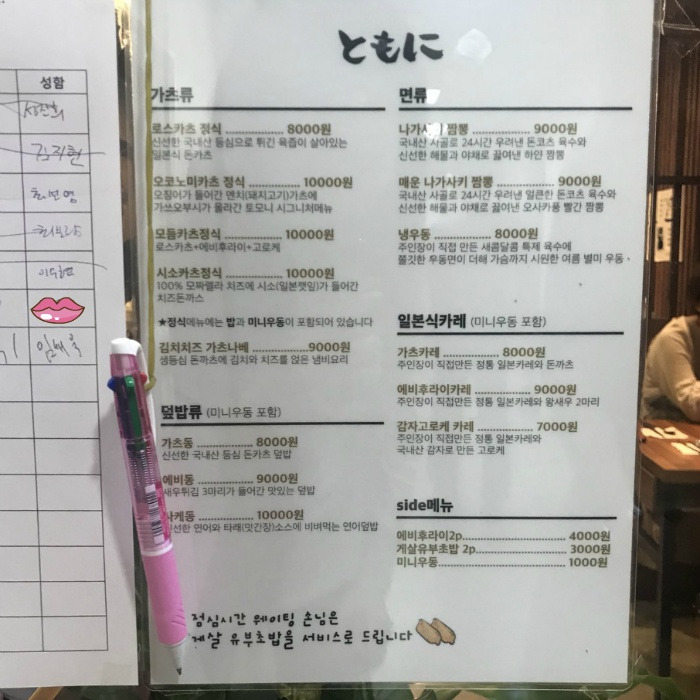 성함
김지현
ともに
가츠류
로스카츠 정식 ............... 8000원
신선한 국내산 등심으로 튀긴 육즙이 살아있는
일본식 돈카츠
오코노미카츠 정식 ............ 10000원
오징어가 들어간 멘치(돼지고기)가츠에
가쓰오부시가 올라간 토모니 시그니처메뉴
모듬카츠정식 ............... 10000원
로스카츠+에비후라이+고로케
시소카츠정식 ............... 10000원
100% 모짜렐라 치즈에 시소(일본깻잎)가 들어간
치즈돈까스
★정식메뉴에는 밥과 미니우동이 포함되어 있습니다
김치치즈 가츠나베 ............9000원
생등심 돈까츠에 김치와 치즈를 얹은 냄비요리
덮밥류 (미니우동 포함)
가츠동 ............... 8000원
신선한 국내산 등심 돈카츠 덮밥
에비동 ............... 9000원
새우튀김 3마리가 들어간 맛있는 덮밥
사케동 ............... 10000원
신선한 연어와 타래(맛간장)소스에 비벼먹는 연어덮밥
면류
나가사키 짬뽕 ............... 9000원
국내산 사골로 24시간 우려낸 돈코츠 육수와
신선한 해물과 야채로 끓여낸 하얀 짬뽕
매운 나가사키 짬뽕 ............ 9000원
국내산 사골로 24시간 우려낸 얼큰한 돈코츠 육수와
신선한 해물과 야채로 끓여낸 오사카풍 빨간 짬뽕
냉우동 ............... 8000원
주인장이 직접 만든 새콤달콤 특제 육수에
쫄깃한 우동면이 더해 가슴까지 시원한 여름 별미 우동
일본식카레 (미니우동 포함)
가츠카레 ............... 8000원
주인장이 직접만든 정통 일본카레와 돈까츠
에비후라이카레 ............ 9000원
주인장이 직접만든 정통 일본카레와 왕새우 2마리
감자고로케 카레 ............ 7000원
주인장이 직접만든 정통 일본카레와
국내산 감자로 만든 고로케
side메뉴
에비후라이2p........................ 4000원
게살유부초밥 2p..................... 3000원
미니우동.............................. 1000원
점심시간 웨이팅 손님은
게살 유부초밥을 서비스로 드립니다